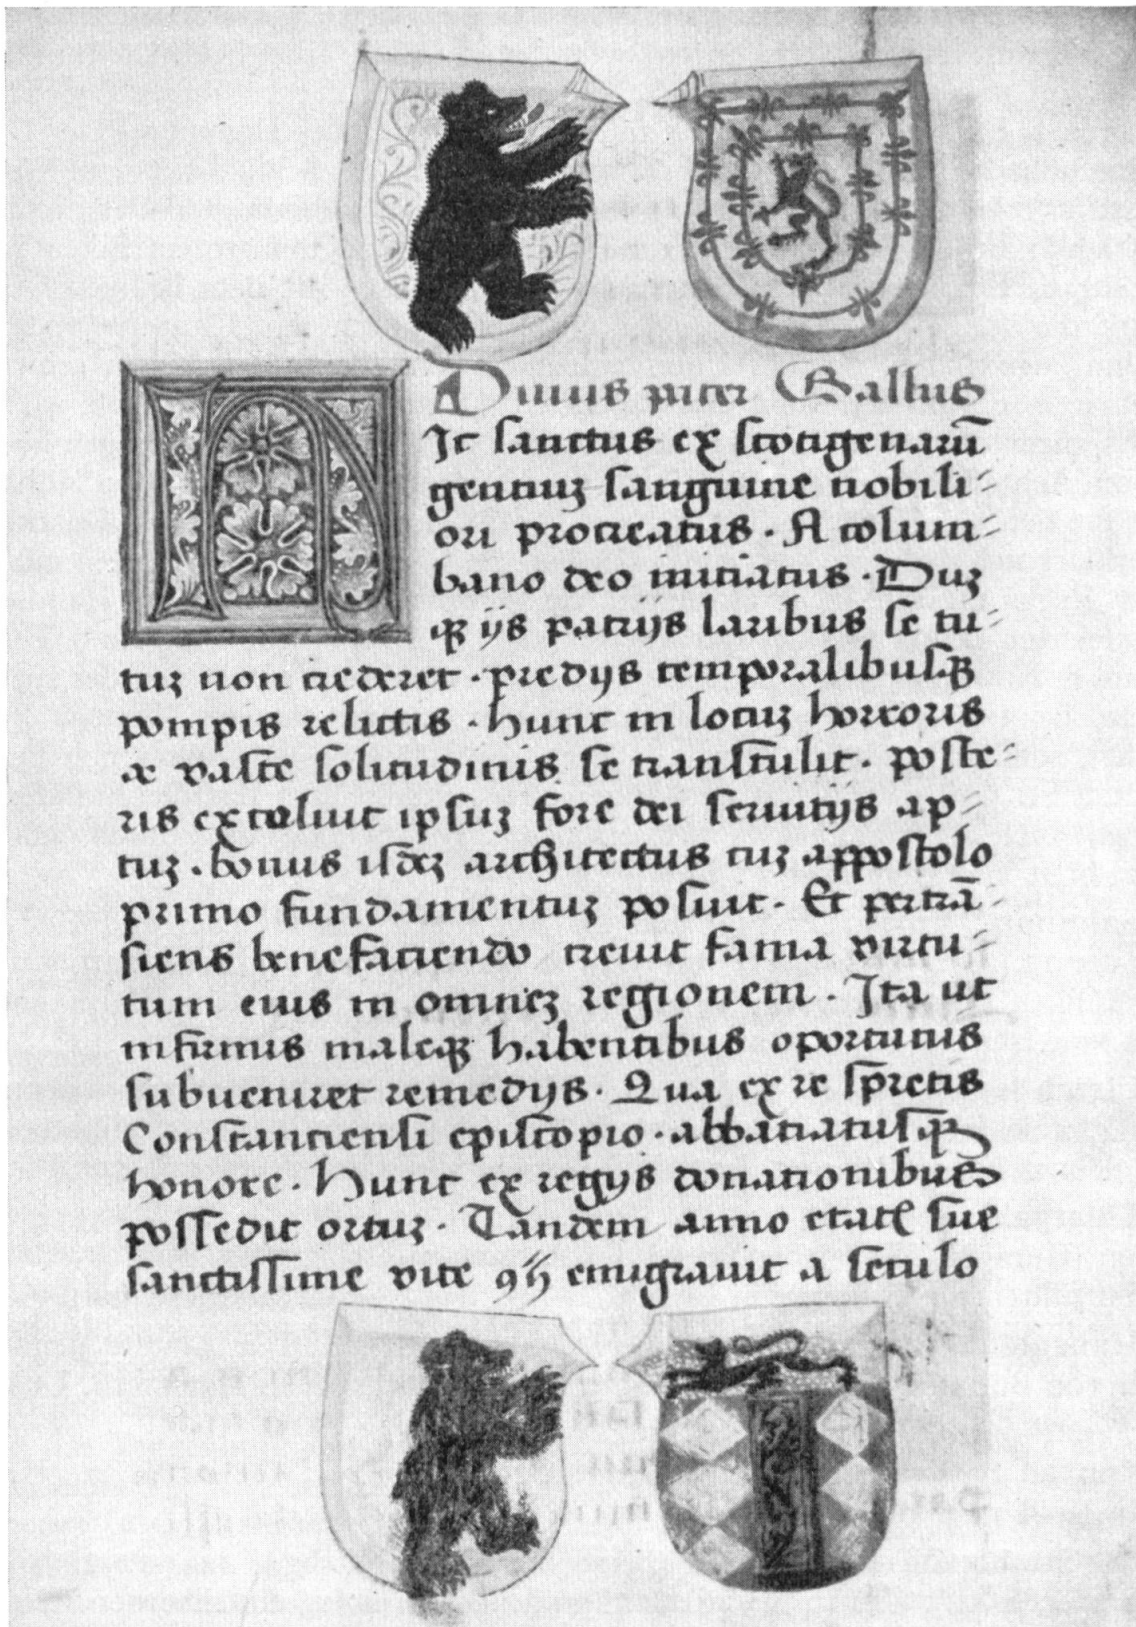 Diuus pater Gallus
HIc sanctus ex scotigenarū
gentiuʒ sanguine nobili=
ori procreatus · A colum=
bano deo initiatus · Duʒ
qꝫ ijs patrijs laribus se tu=
tuʒ non crederet · predijs temporalibusqꝫ
pompis relictis · hunc in locuʒ horroris
ac vaste solitudinis se transtulit · poste=
ris excoluit ipsuʒ fore dei seruitijs ap=
tuʒ · bonus isdeʒ architectus cuʒ appostolo
primo fundamentuʒ posuit · Et pertrā=
siens benefaciendo creuit fama virtu=
tum eius in omneʒ regionem · Ita ut
infirmis maleqꝫ habentibus oportunis
subueniret remedijs · Qua ex re spretis
Constanciensi episcopio · abbaciatusqꝫ
honore · Hunc ex regijs donationibus
possedit ortuʒ · Tandem anno etatꝭ sue
sanctissime vite emigrauit a seculo